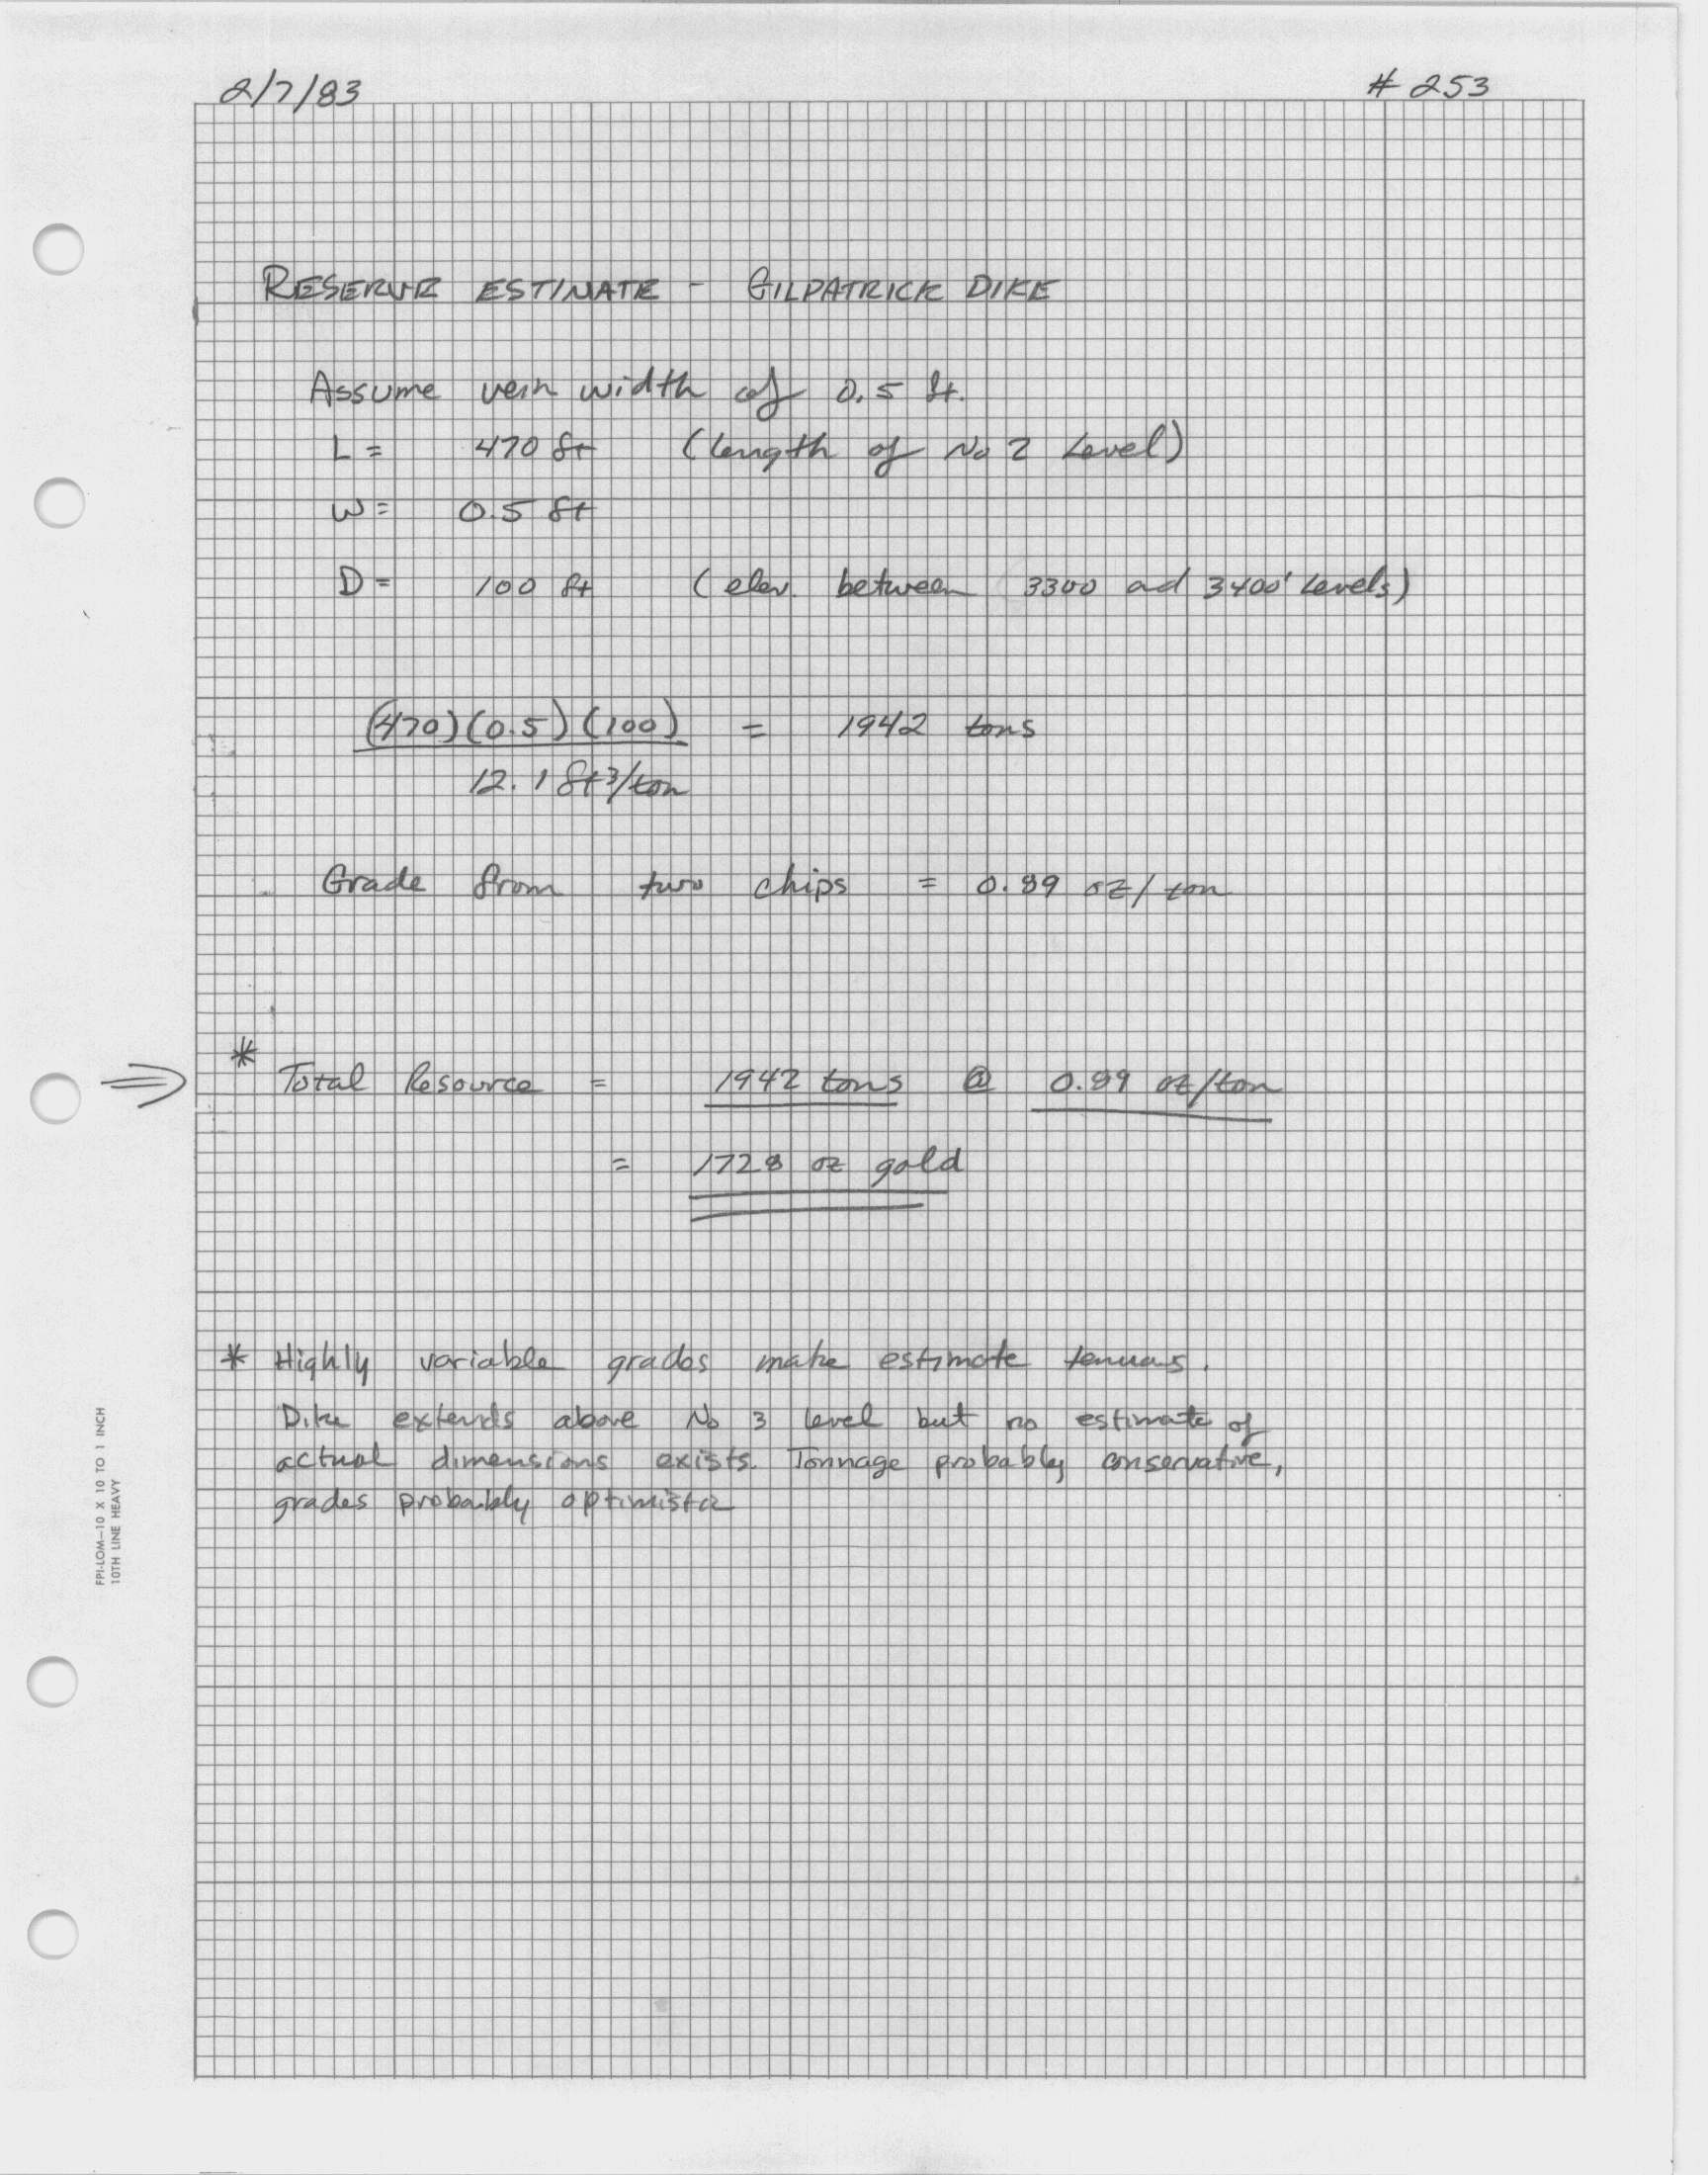 2/7/83 # 253
RESERVE ESTIMATE - GILPATRICK DIKE
Assume vein width of 0.5 ft.
L = 470 ft (length of No 2 Level)
W = 0.5 ft
D = 100 ft (elev. between 3300 ad 3400' Levels)
(470)(0.5)(100) = 1942 tons
12.1 ft³/ton
Grade from two chips = 0.89 oz/ton
*
⇒ Total Resource = 1942 tons @ 0.89 oz/ton
= 1728 oz gold
* Highly variable grades make estimate tenuas.
Dike extends above No 3 level but no estimate of
actual dimensions exists. Tonnage probably conservative,
grades probably optimistic
FPI-LOM—10 X 10 TO 1 INCH
10TH LINE HEAVY